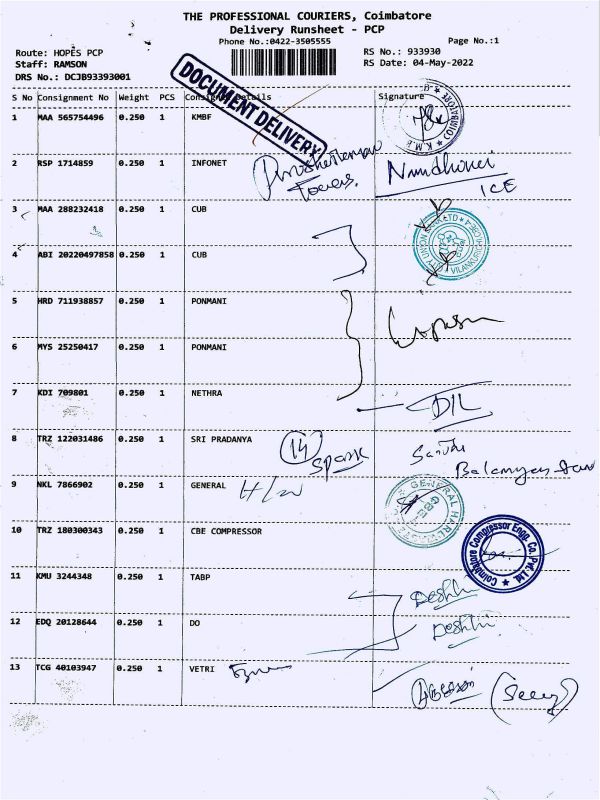 THE PROFESSIONAL COURIERS, Coimbatore
Delivery Runsheet - PCP
Phone No.:0422-3505555 Page No.:1
Route: HOPES PCP RS No.: 933930
Staff: RAMSON RS Date: 04-May-2022
DRS No.: DCJB93393001
DOCUMENT DELIVERY
S No Consignment No Weight PCS Details Signature
1 MAA 565754496 0.250 1 KMBF
2 RSP 1714859 0.250 1 INFONET
ICE
3 MAA 288232418 0.250 1 CUB
4 ABI 20220497858 0.250 1 CUB
5 HRD 711938857 0.250 1 PONMANI
6 MYS 25250417 0.250 1 PONMANI
7 KDI 709801 0.250 1 NETHRA
8 TRZ 122031486 0.250 1 SRI PRADANYA 14
Spark
9 NKL 7866902 0.250 1 GENERAL H/W
10 TRZ 180300343 0.250 1 CBE COMPRESSOR
Coimbatore Compressor Engg. Co. Pvt. Ltd.
11 KMU 3244348 0.250 1 TABP
12 EDQ 20128644 0.250 1 DO
13 TCG 40103947 0.250 1 VETRI